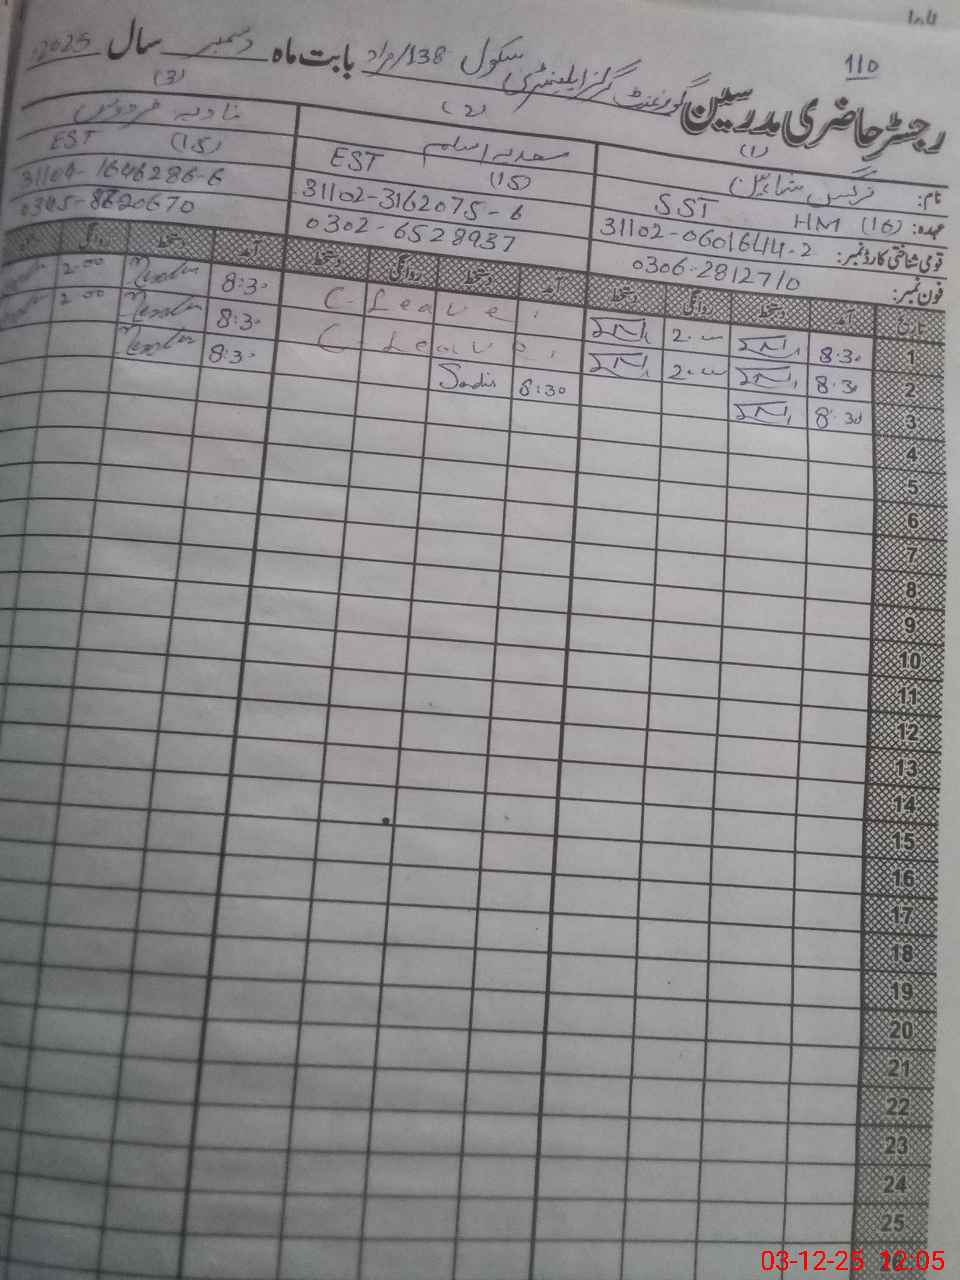 110
رجسٹر حاضری مدرسین گورنمنٹ گرلز ایلیمنٹری سکول 138/مراد بابت ماہ دسمبر سال 2025
(1) (2) (3)
نام: نرگس شاہین سعدیہ اسلم نادیہ فردوس
عہدہ: HM (16) SST (15) EST (15) EST
قومی شناختی کارڈ نمبر: 31102-0601644-2 31102-3162075-6 31104-1646286-6
فون نمبر: 0306-2812710 0302-6528937 0345-8620670
تاریخ آمد دستخط روانگی دستخط آمد دستخط روانگی دستخط آمد دستخط روانگی
1 8:30 2.00 C. Leave. 8:30 2.00
2 8:30 2.00 C. Leave. 8:30 2.00
3 8:30 8:30 8:30
4
5
6
7
8
9
10
11
12
13
14
15
16
17
18
19
20
21
22
23
24
25
26
03-12-25 12:05